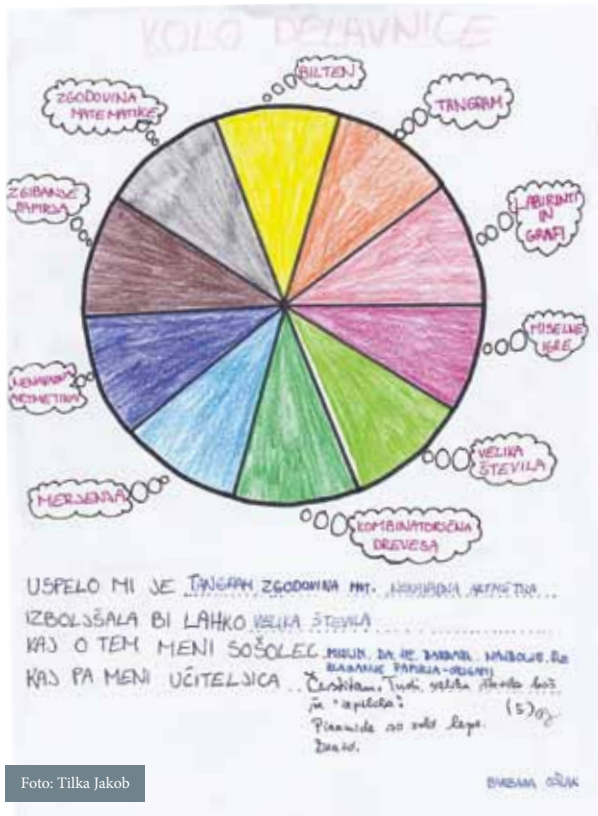 KOLO DELAVNICE
BILTEN
TANGRAM
LABIRINTI
IN
GRAFI
MISELNE
IGRE
VELIKA
ŠTEVILA
KOMBINATORIČNA
DREVESA
MERJENJA
NENAVADNA
ARITMETIKA
ZGIBANJE
PAPIRJA
ZGODOVINA
MATEMATIKE
USPELO MI JE TANGRAM ZGODOVINA MAT. NENAVADNA ARITMETIKA
IZBOLJŠALA BI LAHKO VELIKA ŠTEVILA
KAJ O TEM MENI SOŠOLEC MISLIM, DA JE BARBARI NAJBOLJE
PAPIRJA-ORIGAMI
KAJ PA MENI UČITELJICA Čestitam. Tudi velika števila boš
še
Piramide so zelo lepe.
(5)
BARBARA
Foto: Tilka Jakob